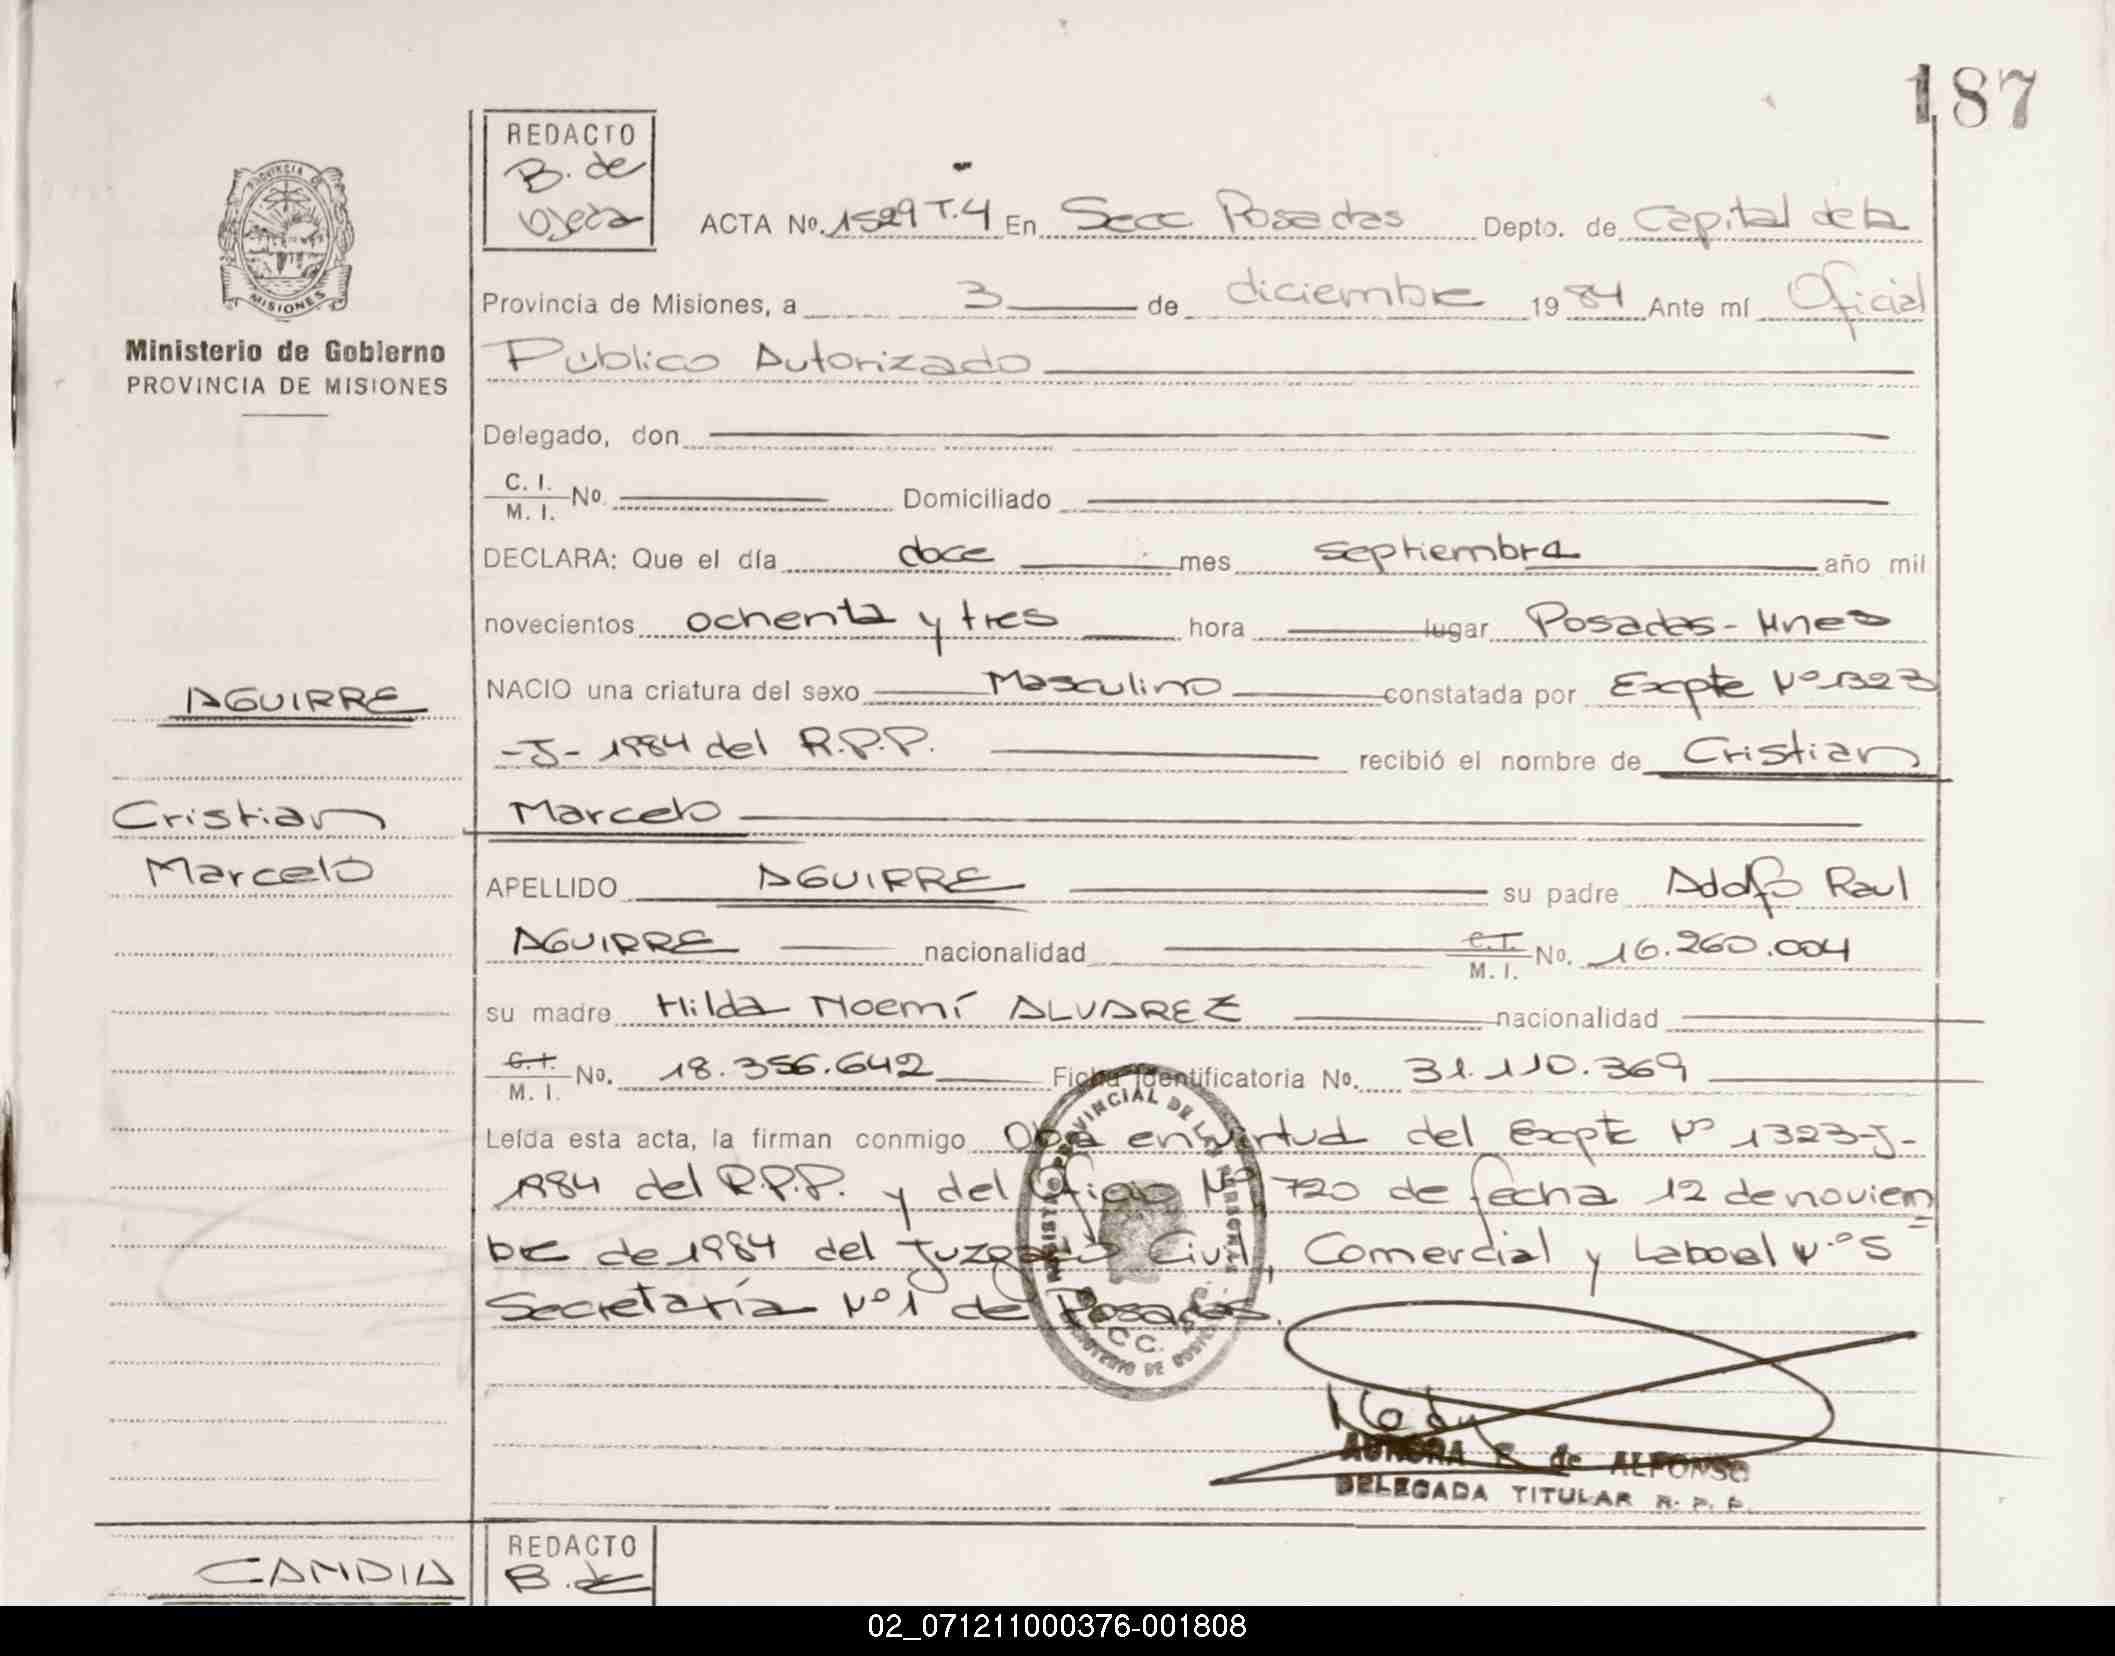 187
REDACTO
B. de
Ojeda
PROVINCIA DE
MISIONES
Ministerio de Gobierno
PROVINCIA DE MISIONES
ACTA No. 1529 T.4 En Secc Posadas Depto. de Capital de la
Provincia de Misiones, a 3 de diciembre 1984 Ante mí Oficial
Público Autorizado
Delegado, don
C. I.
M. I. No. Domiciliado
DECLARA: Que el día doce mes septiembre año mil
novecientos ochenta y tres hora lugar Posadas - Mnes
NACIO una criatura del sexo Masculino constatada por Expte Nº 1323
-J- 1984 del R.P.P. recibió el nombre de Cristian
Marcelo
AGUIRRE
Cristian
Marcelo
APELLIDO AGUIRRE su padre Adolfo Raul
AGUIRRE nacionalidad C.I. M. I. No. 16.260.004
su madre Hilda Noemí ALVAREZ nacionalidad
C.I. M. I. No. 18.356.642 Ficha Identificatoria No. 31.110.369
Leída esta acta, la firman conmigo Obra en virtud del Expte Nº 1323-J-
1984 del R.P.P. y del Oficio Nº 720 de fecha 12 de noviem
bre de 1984 del Juzgado Civil, Comercial y Laboral N.º 5
Secretaría Nº 1 de Posadas.
AURORA E. de ALFONSO
DELEGADA TITULAR R. P. P.
CANDIA
REDACTO
B. de
02_071211000376-001808